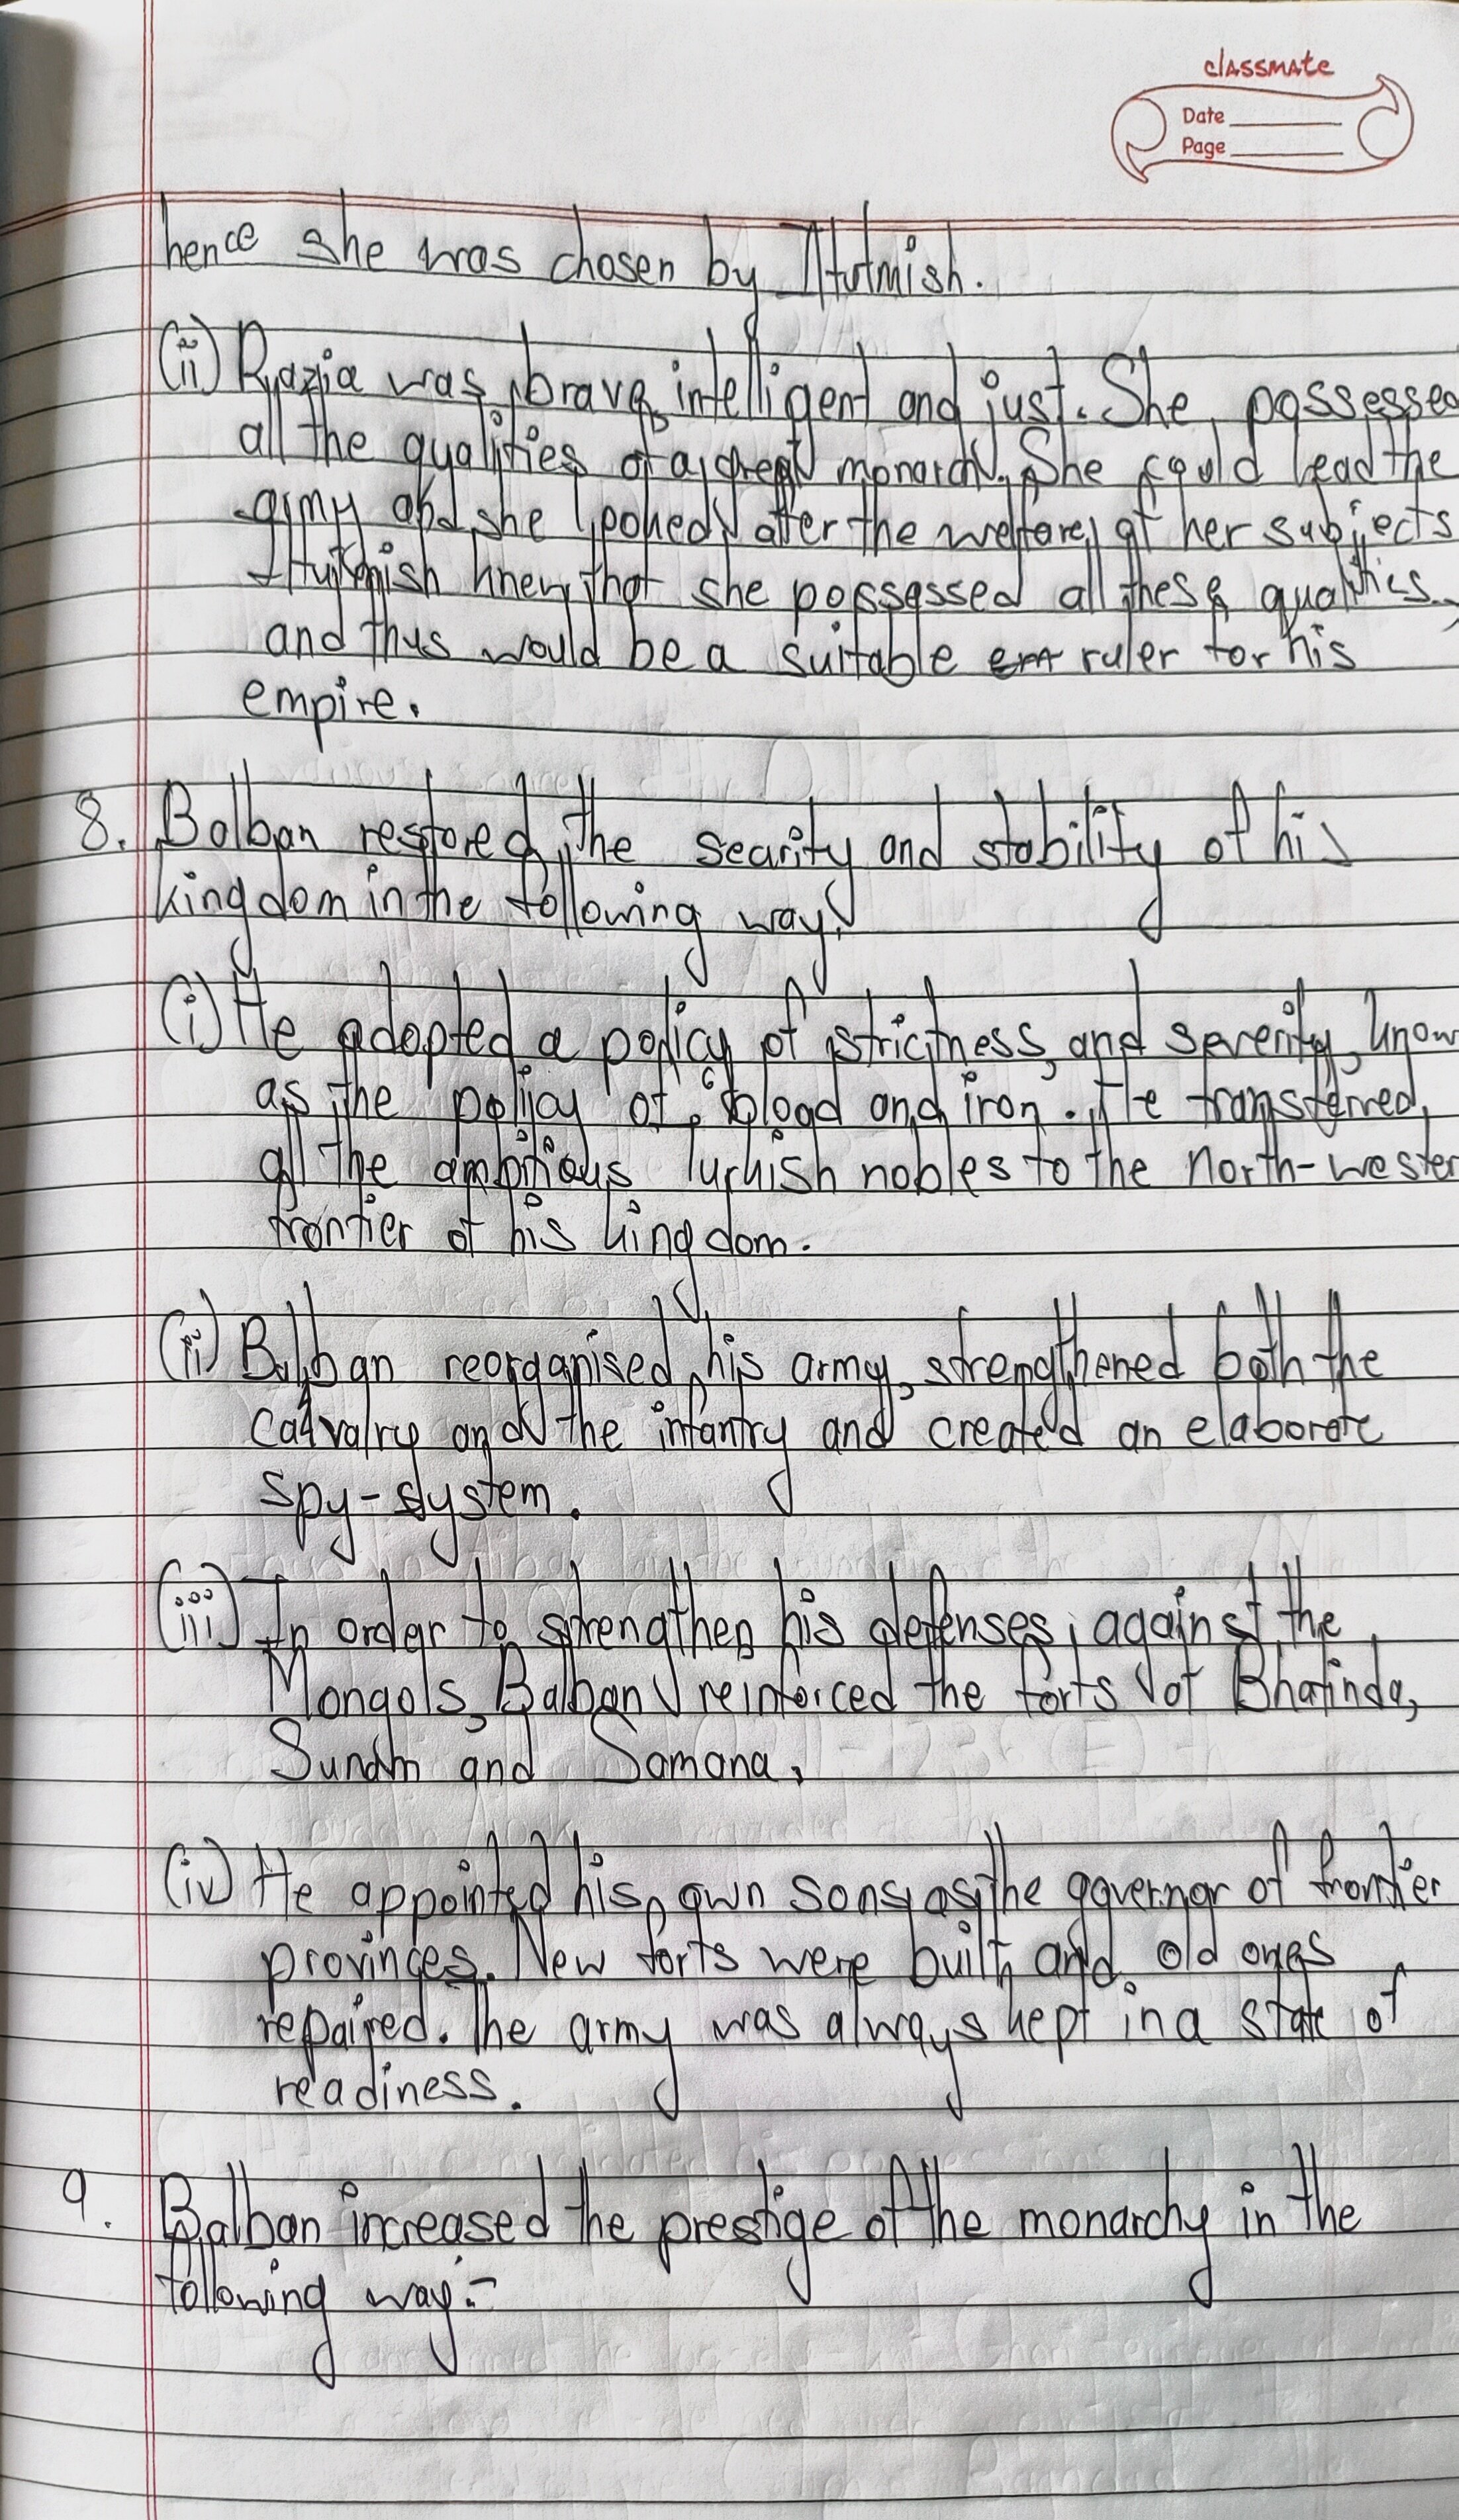 classmate
Date
Page
hence she was chosen by Iltutmish.
(ii) Razia was brave, intelligent and just. She possessed
all the qualities of a great monarch. She could lead the
army and she looked after the welfare of her subjects
Iltutmish knew that she possessed all these qualities,
and thus would be a suitable ruler for his
empire.
8. Balban restored the secrity and stability of his
kingdom in the following way:
(i) He adopted a policy of strictness and severity, know
as the policy of 'blood and iron. He transferred
all the ambitious Turkish nobles to the north-wester
frontier of his kingdom.
(ii) Balban reorganised his army, strengthened both the
calvalry and the infantry and created an elaborate
spy-system.
(iii) In order to strengthen his defenses against the
Mongols, Balban reinforced the forts of Bhatinda,
Sunam and Samana.
(iv) He appointed his own sons as the governor of frontier
provinces. New forts were built and old ones
repaired. The army was always kept in a state of
readiness.
9. Balban increased the prestige of the monarchy in the
following way:-